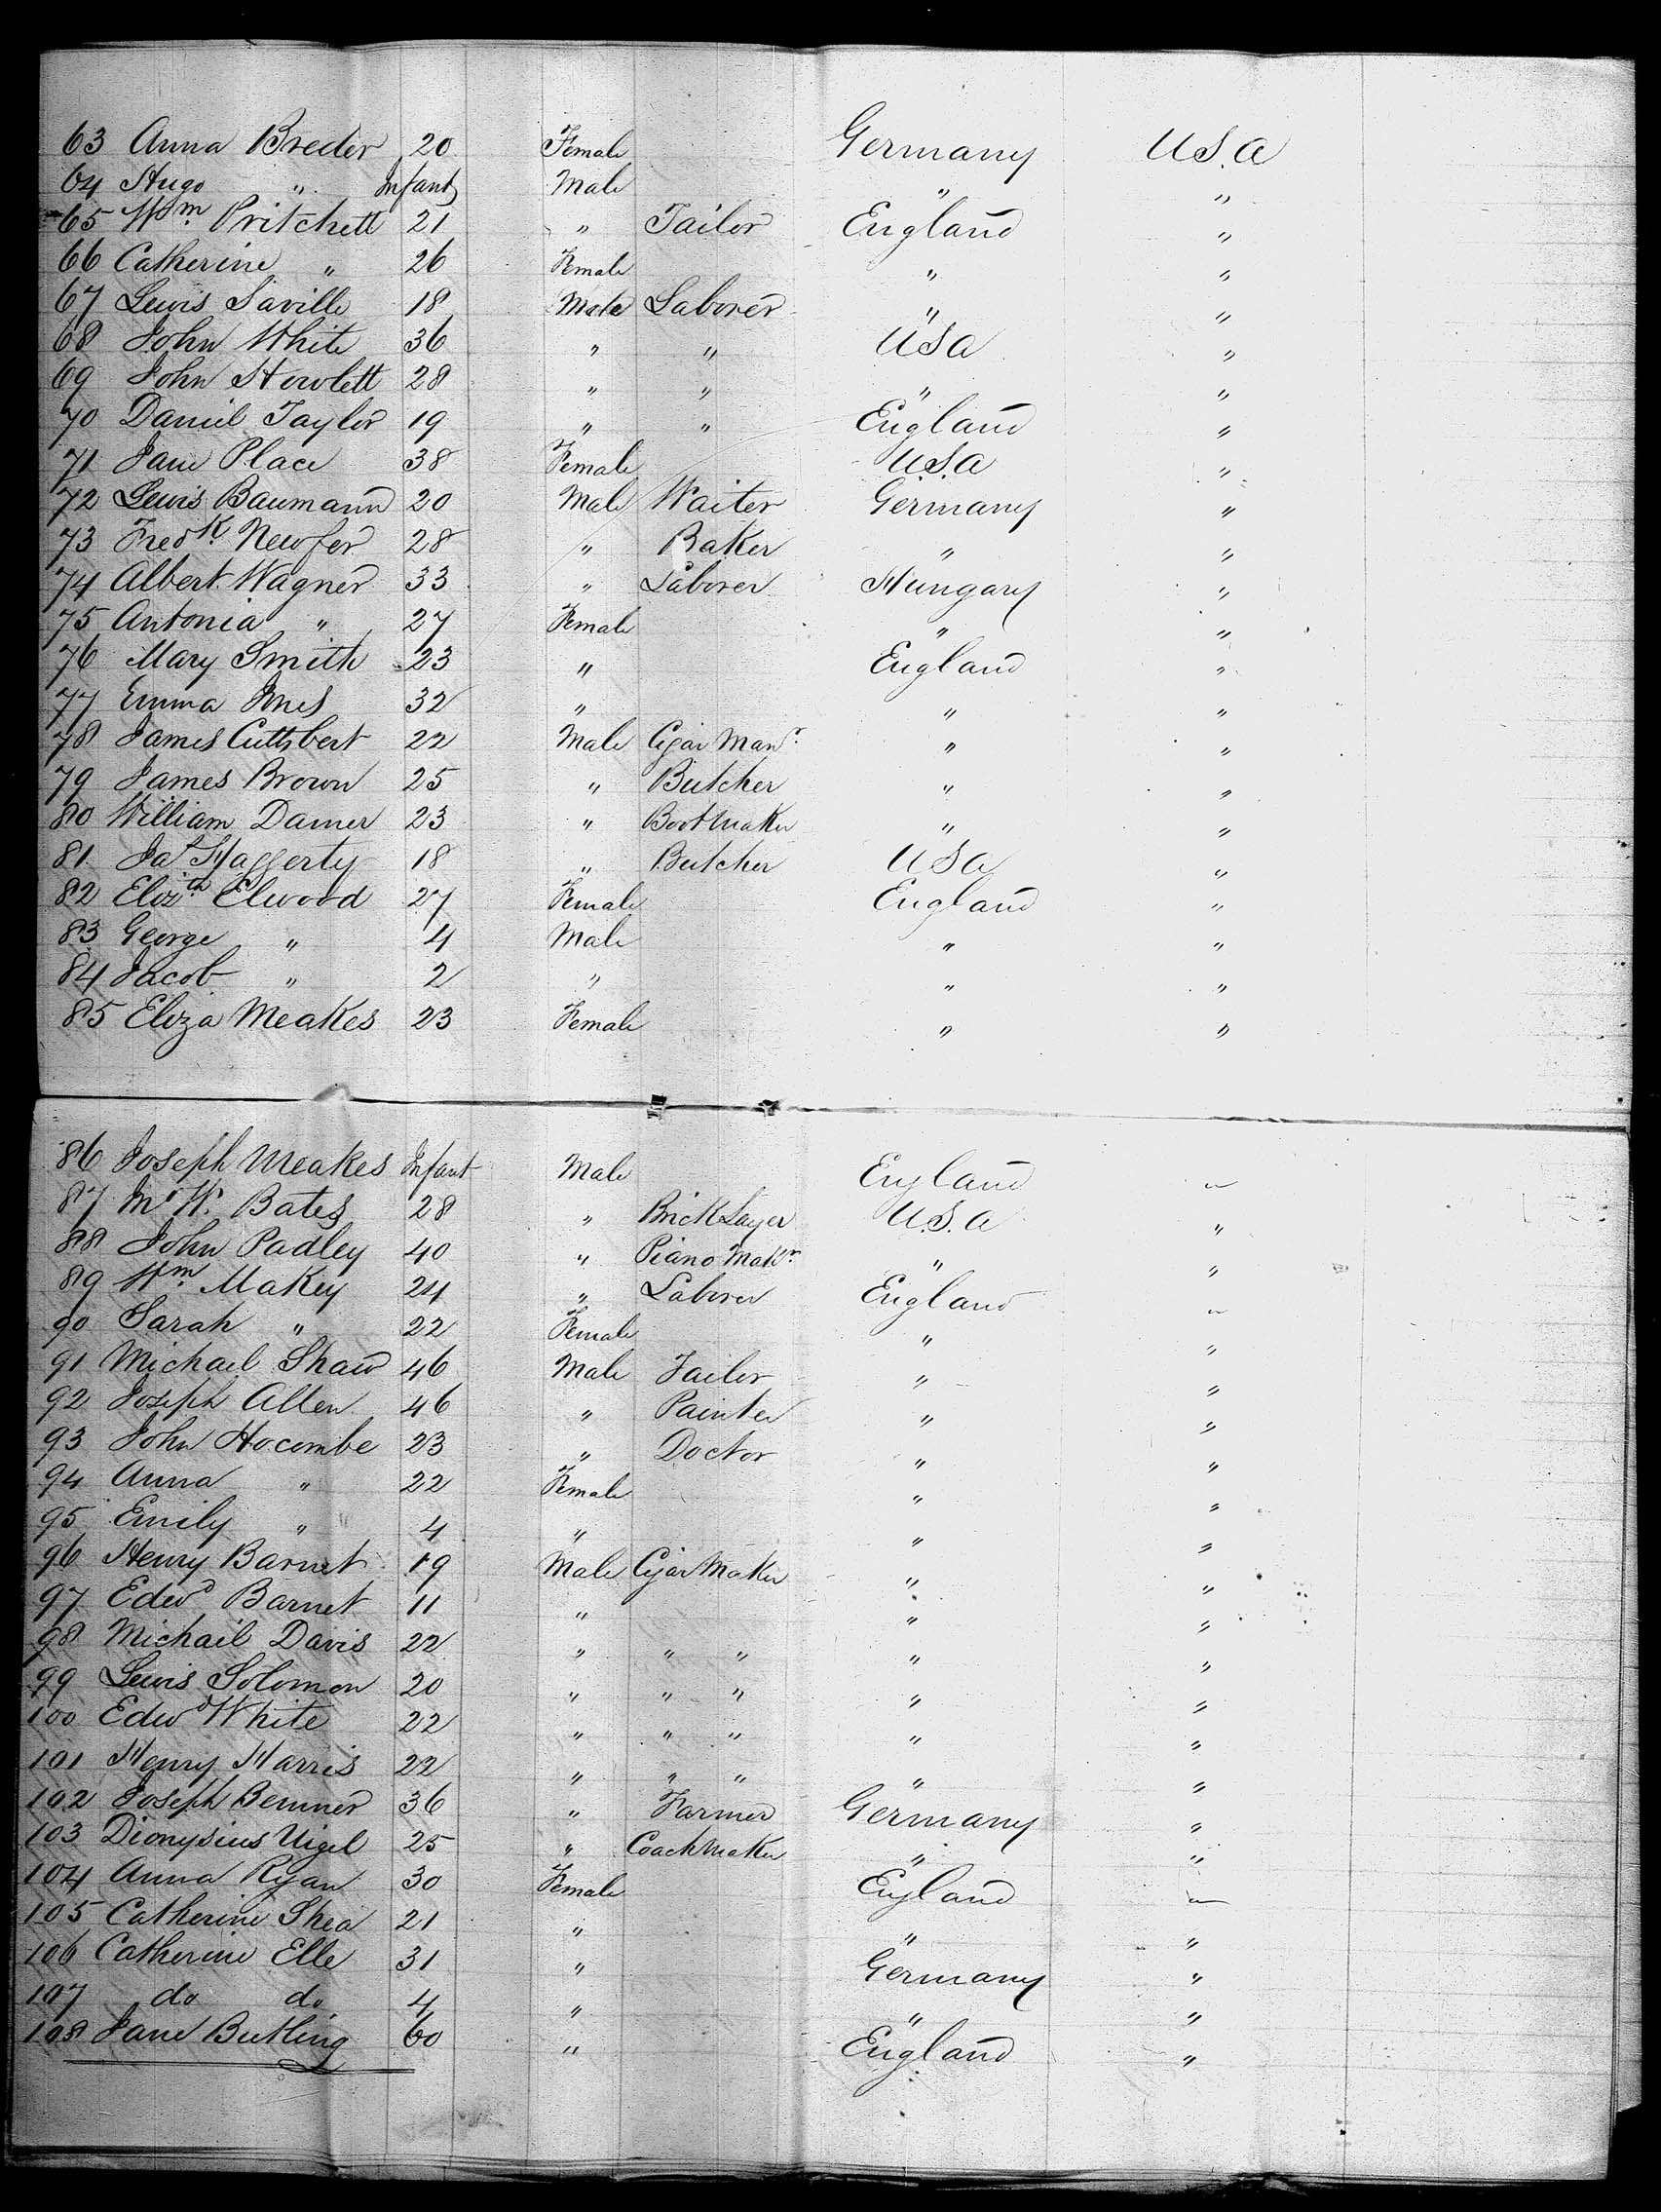 63 Anna Breder 20 Female Germany U.S.A
64 Hugo " Infant Male " "
65 Wm. Pritchett 21 " Tailor England "
66 Catherine " 26 Female " "
67 Lewis Saville 18 Male Laborer " "
68 John White 36 " " USA "
69 John Howlett 28 " " " "
70 Daniel Taylor 19 " " England "
71 Jane Place 38 Female U.S.A "
72 Lewis Baumann 20 Male Waiter Germany "
73 Fredk. Newfer 28 " Baker " "
74 Albert Wagner 33 " Laborer Hungary "
75 Antonia " 27 Female " "
76 Mary Smith 23 " England "
77 Emma Jones 32 " " "
78 James Cuthbert 22 Male Cigar Manr. " "
79 James Brown 25 " Butcher " "
80 William Damer 23 " Bootmaker " "
81 Jas Haggerty 18 " Butcher USA "
82 Elizth Elwood 27 Female England "
83 George " 4 Male " "
84 Jacob " 2 " " "
85 Eliza Meakes 23 Female " "
86 Joseph Meakes Infant Male England "
87 Mr W. Bates 28 " BrickLayer U.S.A "
88 John Padley 40 " Piano Makr. " "
89 Wm. Makey 24 " Laborer England "
90 Sarah " 22 Female " "
91 Michael Shaw 46 Male Tailor " "
92 Joseph Allen 46 " Painter " "
93 John Hocombe 23 " Doctor " "
94 Anna " 22 Female " "
95 Emily " 4 " " "
96 Henry Barnet 19 Male Cigar Maker " "
97 Edwd Barnet 11 " " "
98 Michail Davis 22 " " " " "
99 Lewis Solomon 20 " " " " "
100 Edwd White 22 " " " " "
101 Henry Harris 22 " " " " "
102 Joseph Bemner 36 " Farmer Germany "
103 Dionysius Uigel 25 " Coachmaker " "
104 Anna Ryan 30 Female England "
105 Catherine Shea 21 " " "
106 Catherine Elle 31 " Germany "
107 do do 4 " " "
108 Jane Butling 60 " England "